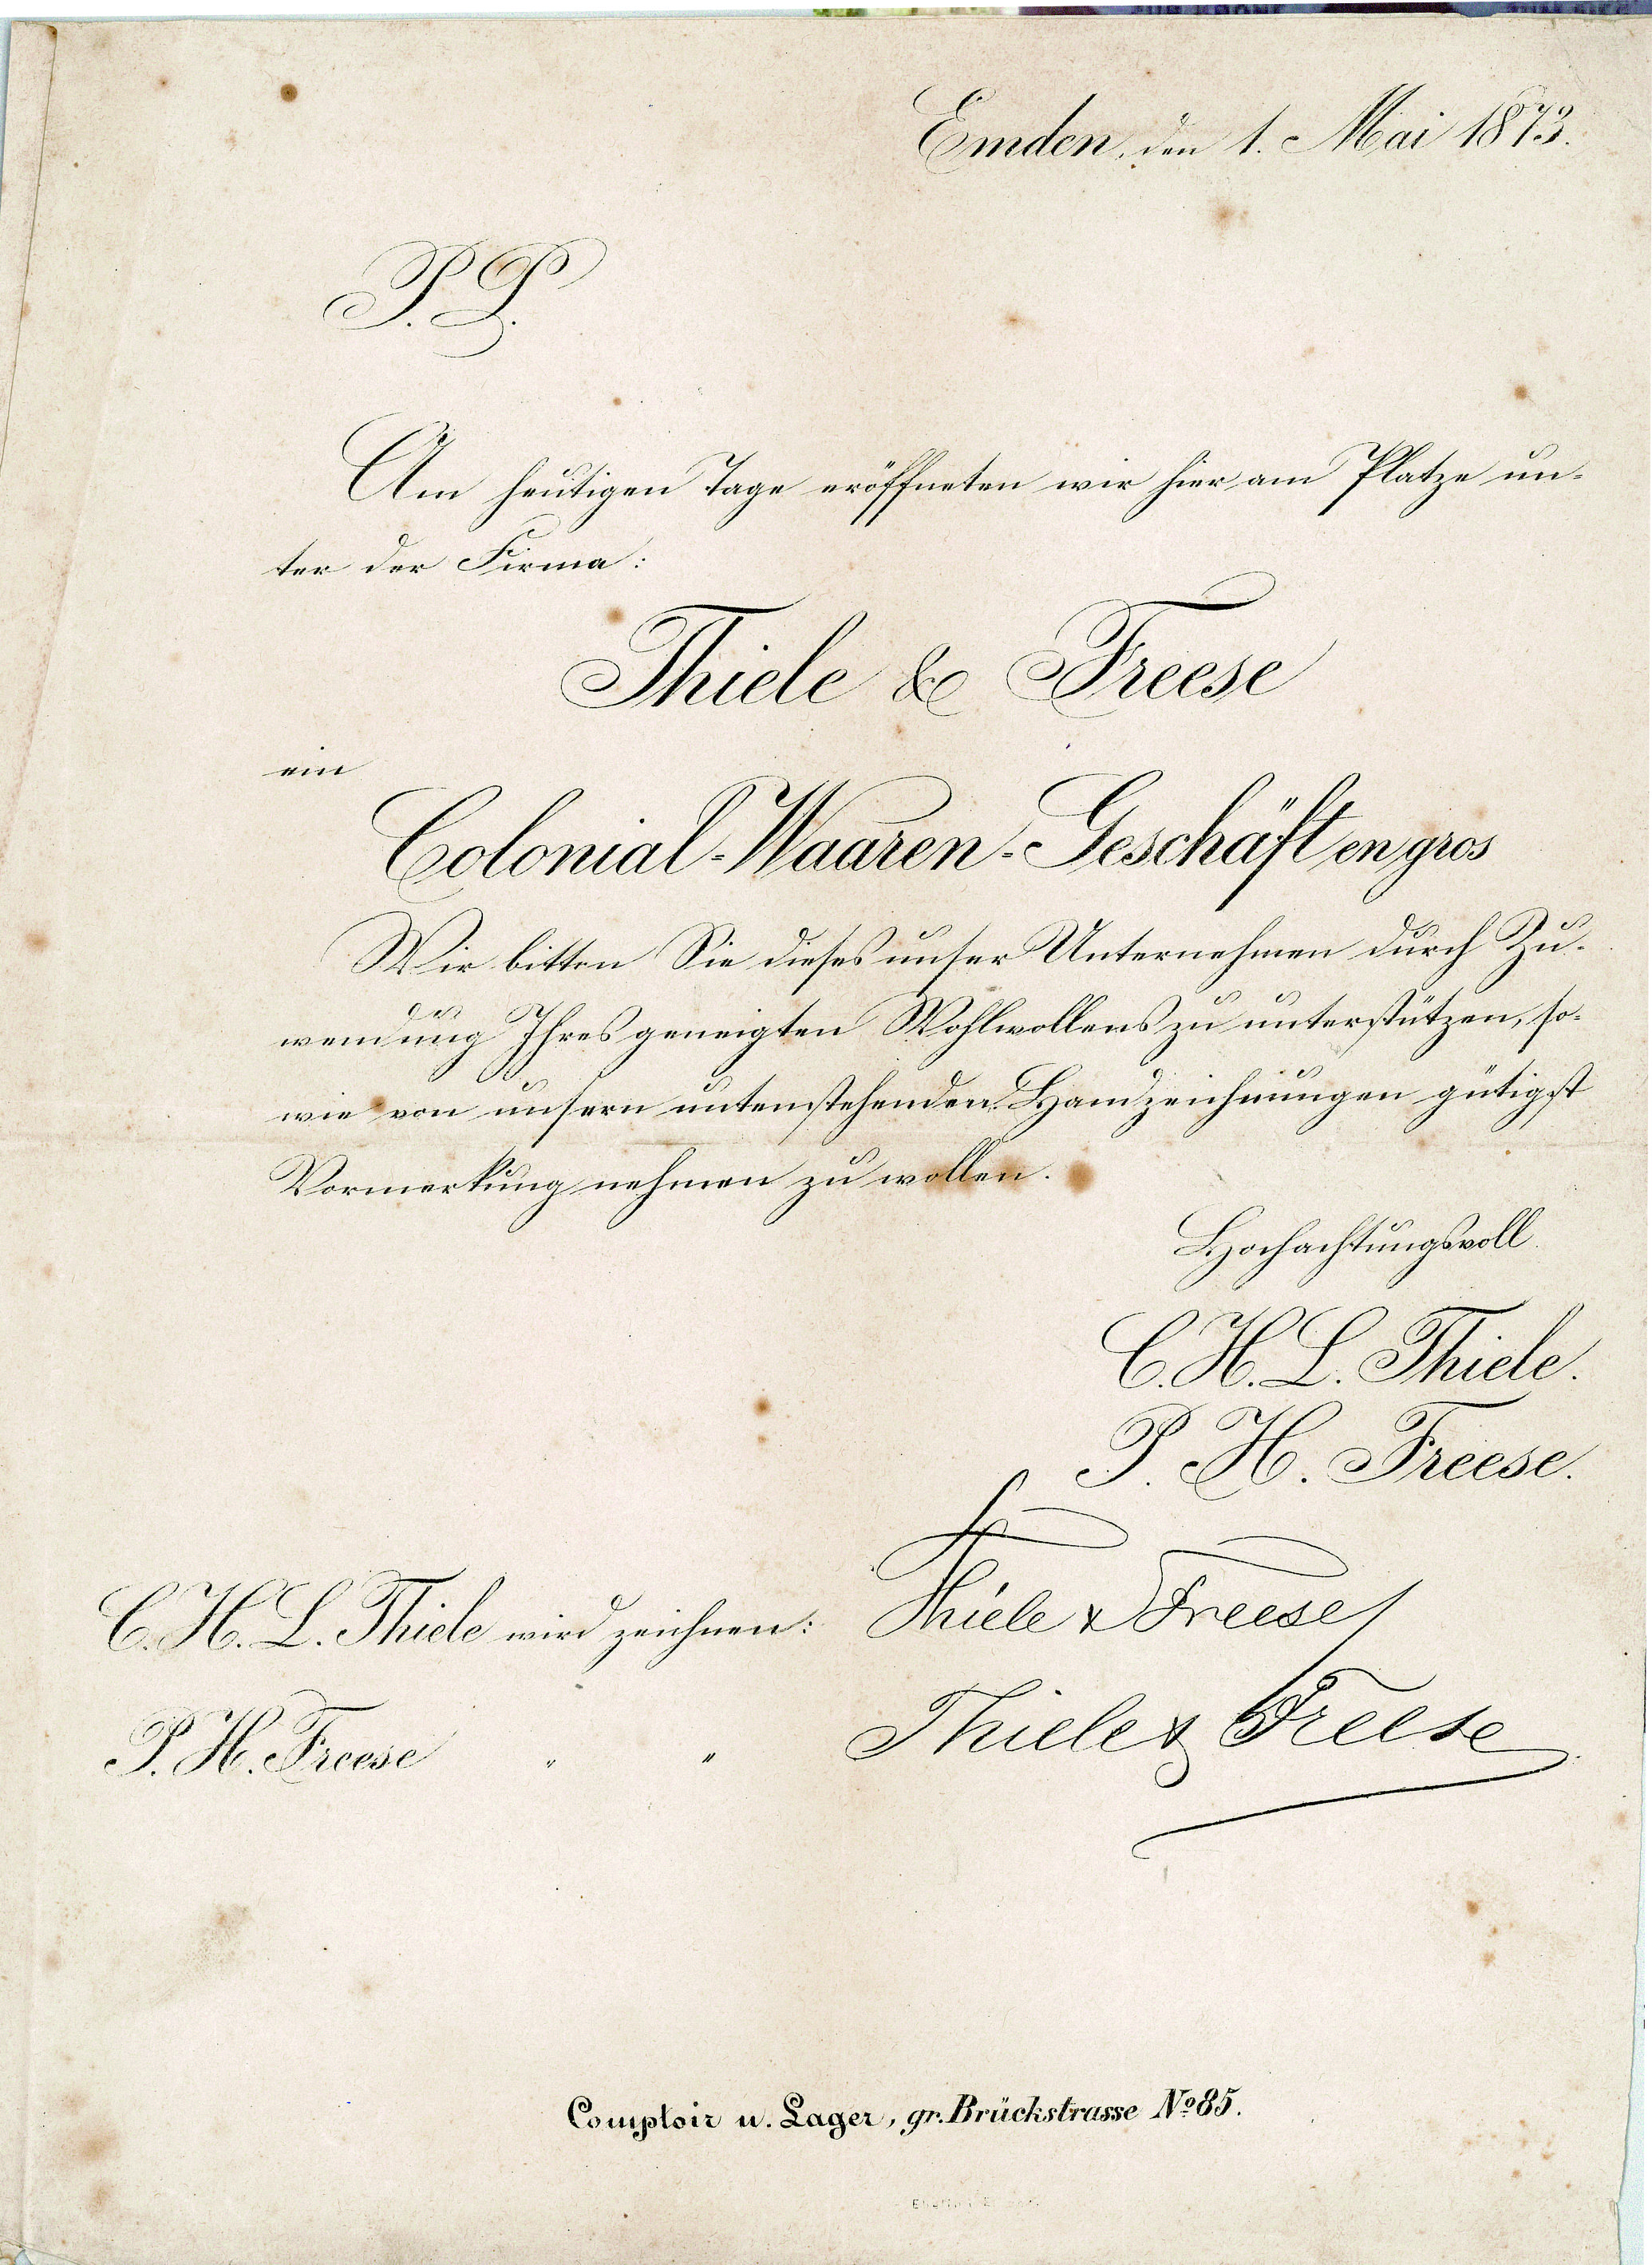 Emden, den 1. Mai 1873.
P. P.
Am heutigen Tage eröffneten wir hier am Platze un-
ter der Firma:
Thiele & Freese
ein
Colonial-Waaren-Geschäft en gros
Wir bitten Sie dieses unser Unternehmen durch Zu-
wendung Ihres geneigten Wohlwollens zu unterstützen, so-
wie von unsern untenstehenden Handzeichnungen gütigst
Vormerkung nehmen zu wollen.
Hochachtungsvoll
C. H. L. Thiele.
P. H. Freese.
C. H. L. Thiele wird zeichnen: Thiele & Freese
P. H. Freese " " Thiele & Freese
Comptoir u. Lager, gr. Brückstrasse No 85.